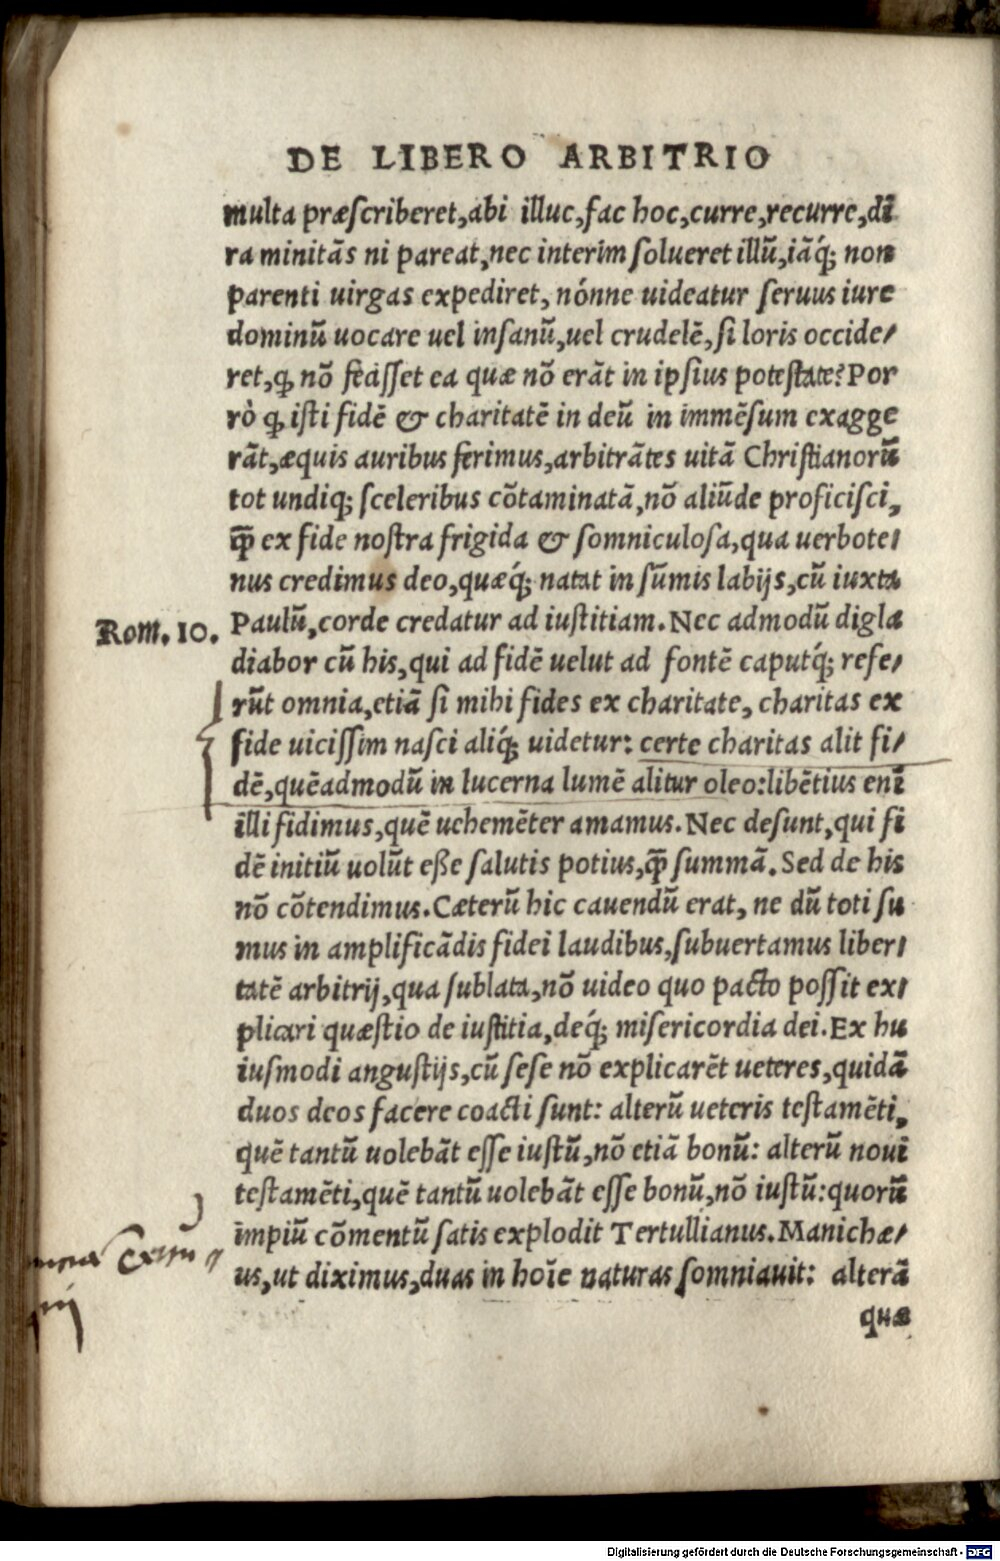 DE LIBERO ARBITRIO
multa præscriberet, abi illuc, fac hoc, curre, recurre, di
ra minitãs ni pareat, nec interim solueret illũ, iãq́; non
parenti uirgas expediret, nónne uideatur seruus iure
dominũ uocare uel insanũ, uel crudelẽ, si loris occide/
ret, ꝙ nõ fecisset ea quæ nõ erãt in ipsius potestate? Por
rò ꝙ isti fidẽ & charitatẽ in deũ in immẽsum exagge
rãt, æquis auribus ferimus, arbitrãtes uitã Christianorũ
tot undiq; sceleribus cõtaminatã, nõ aliũde proficisci,
q̃ꝫ ex fide nostra frigida & somniculosa, qua uerbote/
nus credimus deo, quæq́; natat in sũmis labijs, cũ iuxta
Rom. 10. Paulũ, corde credatur ad iustitiam. Nec admodũ digla
diabor cũ his, qui ad fidẽ uelut ad fontẽ caputq́; refe/
rũt omnia, etiã si mihi fides ex charitate, charitas ex
fide uicissim nasci aliq́; uidetur: certe charitas alit fi/
dẽ, quẽadmodũ in lucerna lumẽ alitur oleo: libẽtius enĩ
illi fidimus, quẽ uehemẽter amamus. Nec desunt, qui fi
dẽ initiũ uolũt eße salutis potius, q̃ꝫ summã. Sed de his
nõ cõtendimus. Cæterũ hic cauendũ erat, ne dũ toti su
mus in amplificãdis fidei laudibus, subuertamus liber/
tatẽ arbitrij, qua sublata, nõ uideo quo pacto possit ex/
plicari quæstio de iustitia, deq́; misericordia dei. Ex hu
iusmodi angustijs, cũ sese nõ explicarẽt ueteres, quidã
duos deos facere coacti sunt: alterũ ueteris testamẽti,
quẽ tantũ uolebãt esse iustũ, nõ etiã bonũ: alterũ noui
testamẽti, quẽ tantũ uolebãt esse bonũ, nõ iustũ: quorũ
impiũ cõmentũ satis explodit Tertullianus. Manichæ/
us, ut diximus, duas in hoĩe naturas somniauit: alterã
quæ
Digitalisierung gefördert durch die Deutsche Forschungsgemeinschaft - DFG